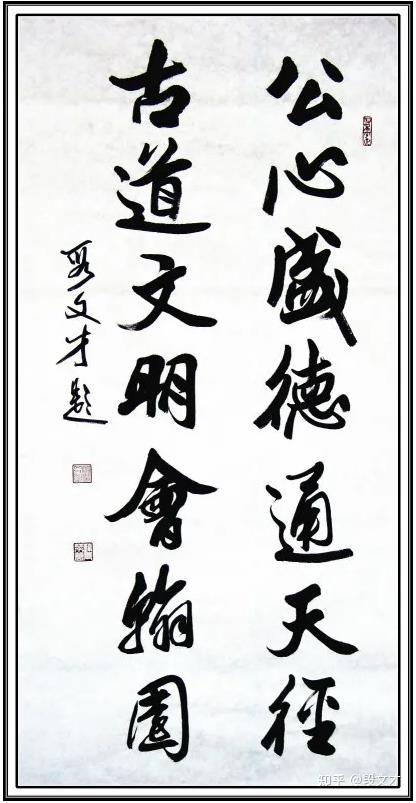 公心盛德通天徑
古道文明會翰園
段文才題
知乎 @段文才